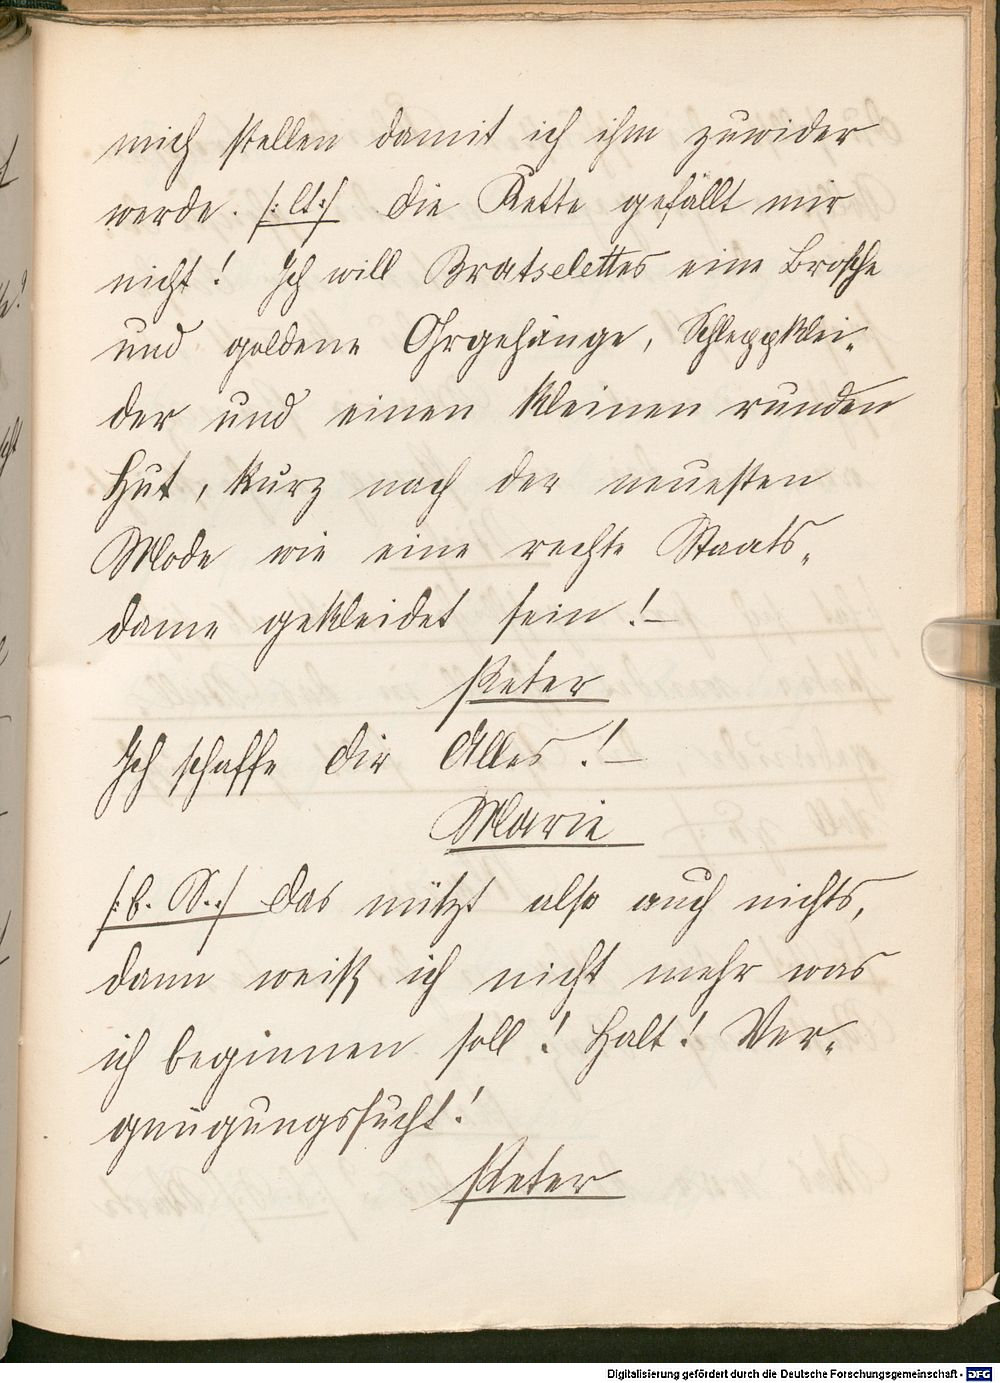 mich stellen damit ich ihm zuwider
werde. /: lt :/ die Kette gefällt mir
nicht! Ich will Bratselettes eine Brosche
und goldene Ohrgehänge, Schleppklei-
der und einen kleinen runden
Hut, kurz nach der neuesten
Mode wie eine rechte Staats-
dame gekleidet sein! –
Peter
Ich schaffe dir Alles! –
Marie
/: b. S. :/ das nützt also auch nichts,
dann weiß ich nicht mehr was
ich beginnen soll! Halt! Ver-
gnügungssucht!
Peter
Digitalisierung gefördert durch die Deutsche Forschungsgemeinschaft - DFG